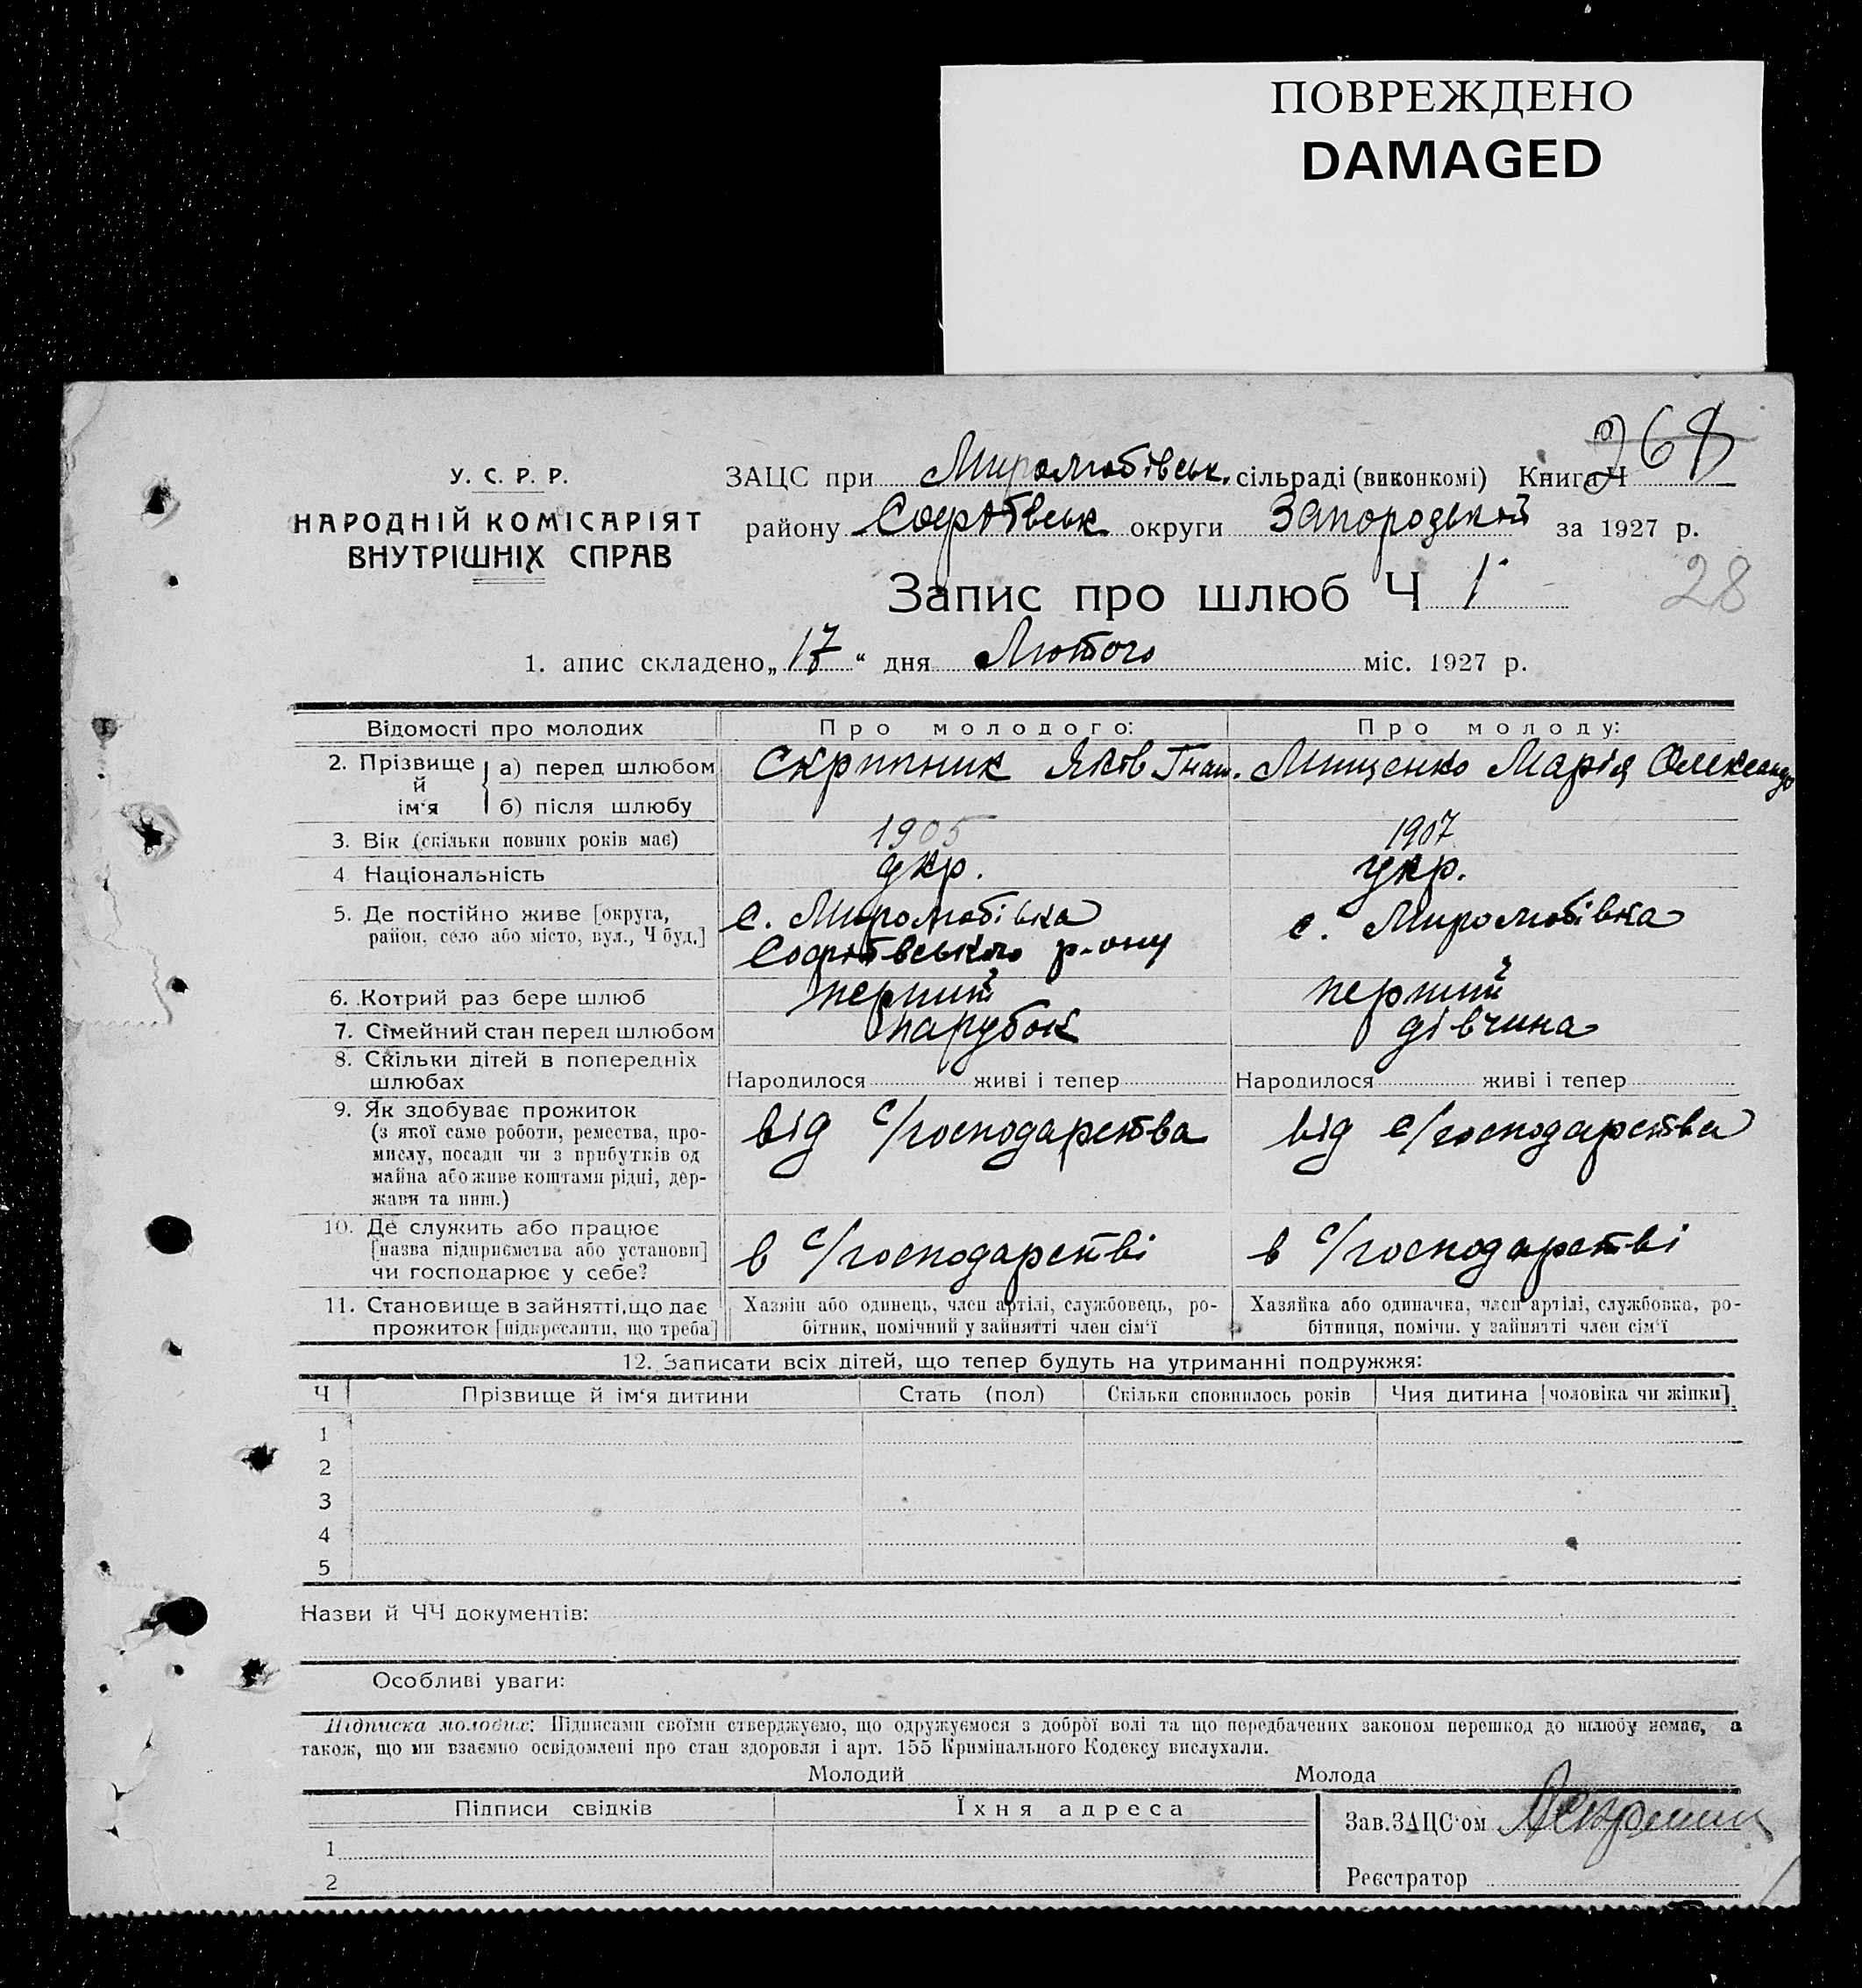 ПОВРЕЖДЕНО
DAMAGED
У. С. Р. Р.
НАРОДНІЙ КОМІСАРІЯТ
ВНУТРІШНІХ СПРАВ
ЗАЦС при Миролюбівськ. сільраді (виконкомі) Книга Ч 268
району Софіївськ округи Запорозької за 1927 р.
Запис про шлюб Ч 1
28
1. апис складено „17“ дня Лютого міс. 1927 р.
Відомості про молодих Про молодого: Про молоду:
2. Прізвище й ім‘я а) перед шлюбом Скрипник Яків Гнат. Мищенко Марія Олександр
б) після шлюбу
3. Вік (скільки повних років має) 1905 1907
4 Національність укр. укр.
5. Де постійно живе [округа, с. Миролюбівка с. Миролюбівка
район, село або місто, вул., Ч буд.] Софіївського р-ону
6. Котрий раз бере шлюб перший перший
7. Сімейний стан перед шлюбом парубок дівчина
8. Скільки дітей в попередніх
шлюбах Народилося живі і тепер Народилося живі і тепер
9. Як здобуває прожиток
(з якої саме роботи, ремества, про- від с/господарства від с/господарства
мислу, посади чи з прибутків од
майна або живе коштами рідні, дер-
жави та инш.)
10. Де служить або працює
[назва підприємства або установи] в с/господарстві в с/господарстві
чи господарює у себе?
11. Становище в зайнятті, що дає Хазяїн або одинець, член артілі, службовець, ро- Хазяйка або одиначка, член артілі, службовка, ро-
прожиток [підкреслити, що треба] бітник, помічний у зайнятті член сім‘ї бітниця, помічн. у зайнятті член сім‘ї
12. Записати всіх дітей, що тепер будуть на утриманні подружжя:
Ч Прізвище й ім‘я дитини Стать (пол) Скільки сповнилось років Чия дитина [чоловіка чи жінки]
1
2
3
4
5
Назви й ЧЧ документів:
Особливі уваги:
Підписка молодих: Підписами своїми стверджуємо, що одружуємося з доброї волі та що передбачених законом перешкод до шлюбу немає, а
також, що ми взаємно освідомлені про стан здоровля і арт. 155 Кримінального Кодексу вислухали.
Молодий Молода
Підписи свідків Їхня адреса
Зав. ЗАЦС‘ом
1
Реєстратор
2